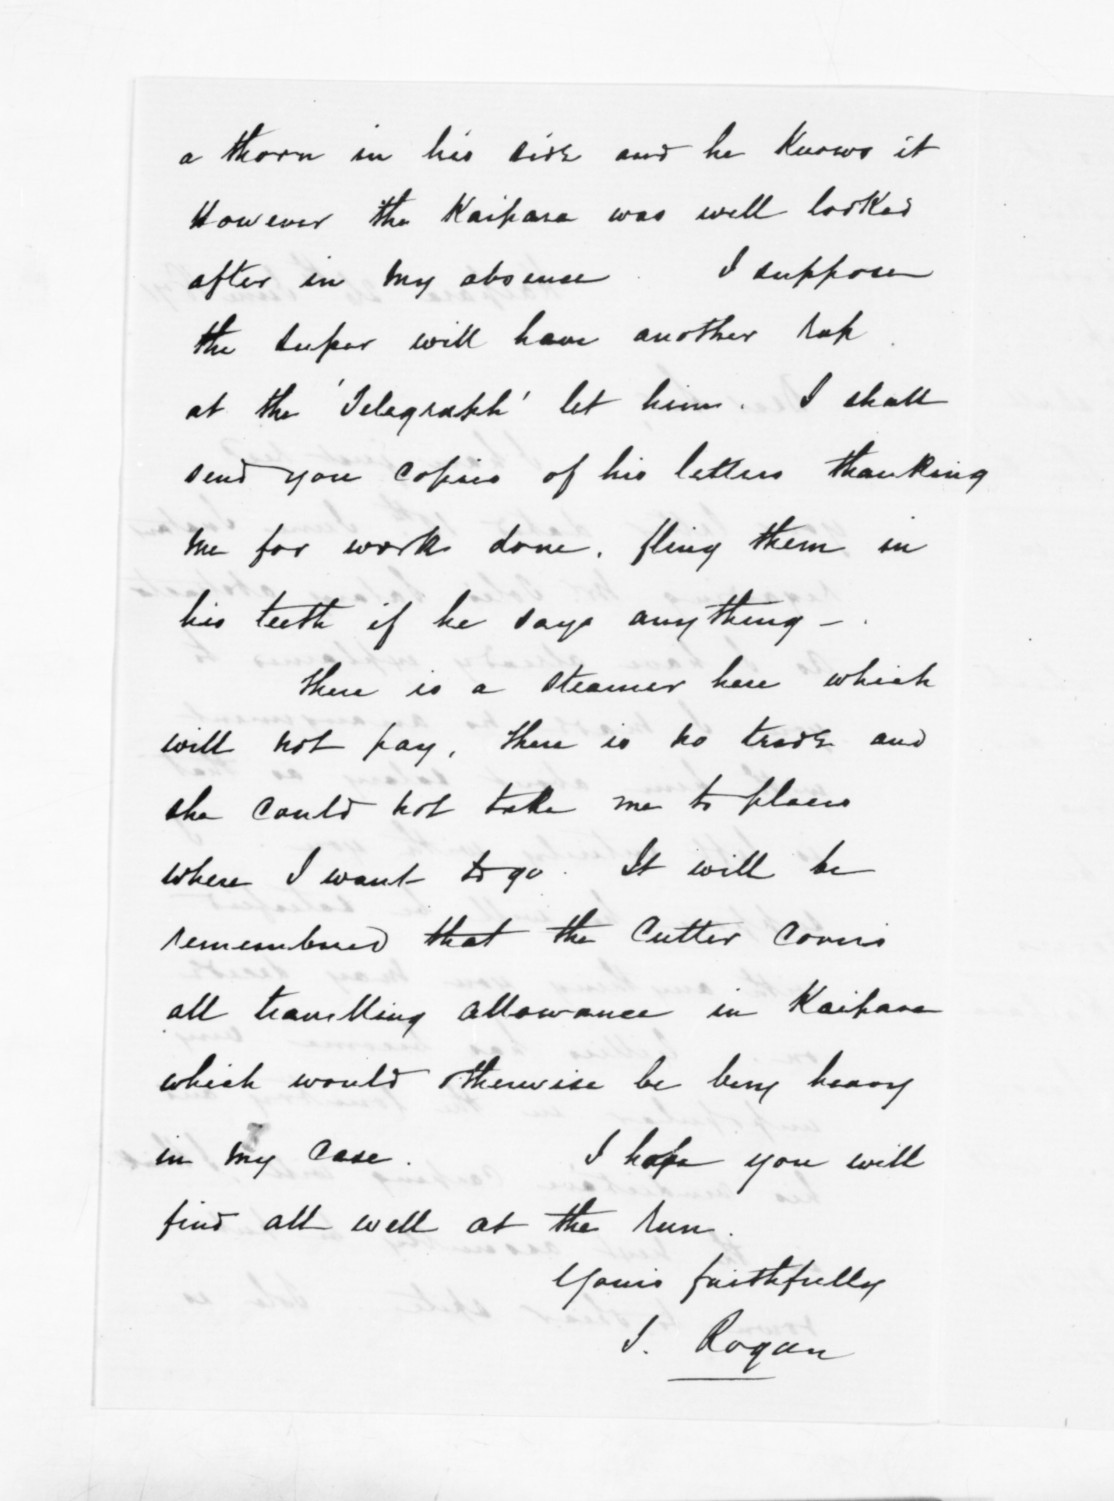 a thorn in his side and he knows it
However the Kaipara was well looked
after in my absence I suppose
the super will have another rap
at the 'Telegraph' let him. I shall
send you copies of his letters thanking
me for works done, fling them in
his teeth if he says anything –
There is a steamer here which
will not pay, there is no trade and
she could not take me to places
where I want to go. It will be
remembered that the Cutter covers
all travelling allowance in Kaipara
which would otherwise be very heavy
in my case. I hope you will
find all well at the run.
Yours faithfully
J. Rogan